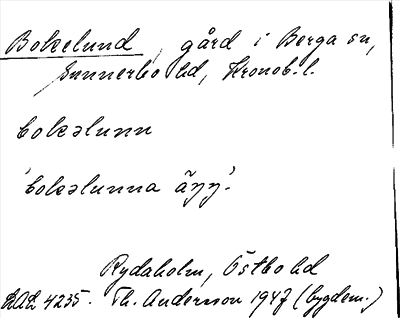 Bokelund, gård i Berga sn,
Sunnerbo hd, Kronob. l.
bokəlunn
'bokəlunna äŋŋ'.
Rydaholm, Östbo hd
LAL 4235. Th. Andersson 1947 (bygdem.)